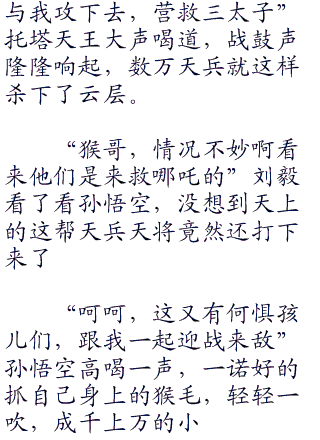 与我攻下去，营救三太子”
托塔天王大声喝道，战鼓声
隆隆响起，数万天兵就这样
杀下了云层。
“猴哥，情况不妙啊看
来他们是来救哪吒的” 刘毅
看了看孙悟空，没想到天上
的这帮天兵天将竟然还打下
来了
“呵呵，这又有何惧孩
儿们，跟我一起迎战来敌”
孙悟空高喝一声，一诺好的
抓自己身上的猴毛，轻轻一
吹，成千上万的小